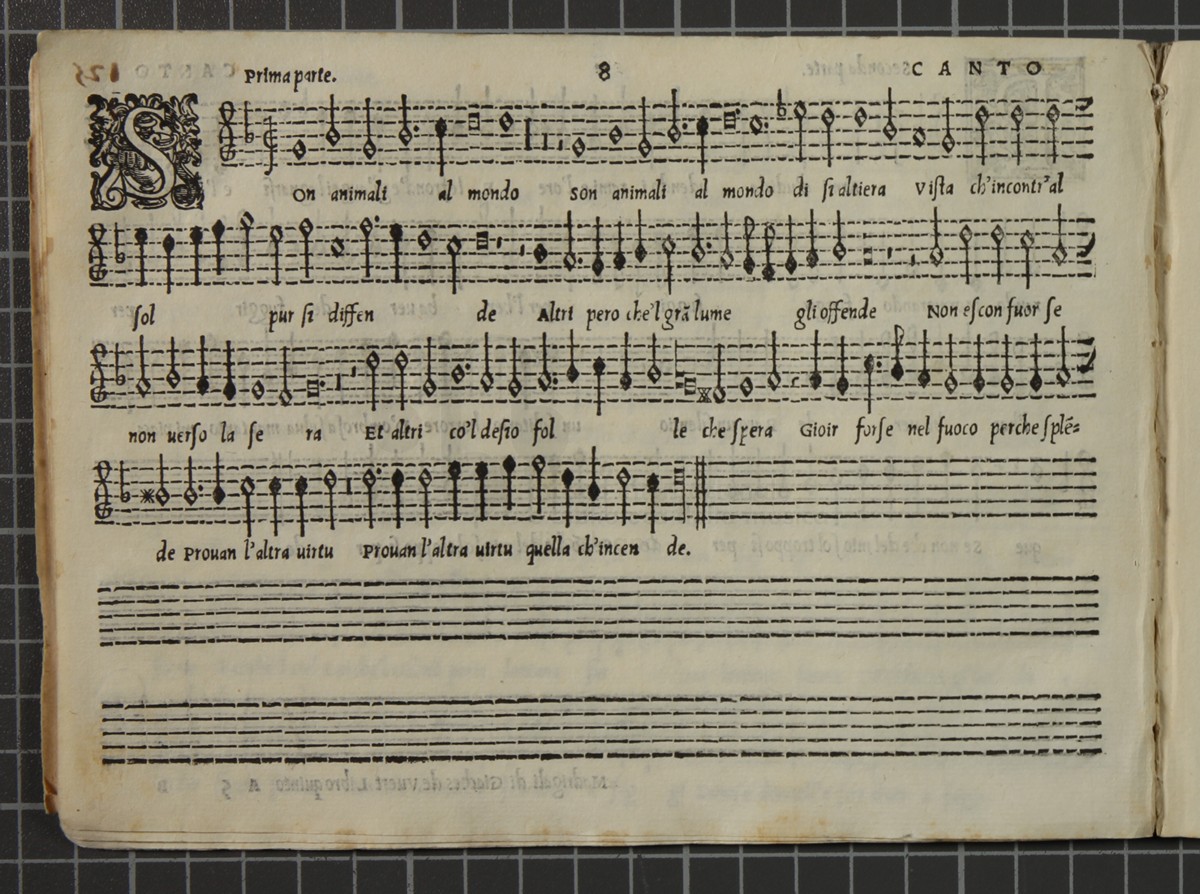 Prima parte. 8 CANTO
SOn animali al mondo Son animali al mondo di si altiera Vista ch'incontr'al
sol pur si diffen de Altri pero che'l grã lume gli offende Non escon fuor se
non uerso la se ra Et altri co'l desio fol le che spera Gioir forse nel fuoco perche splẽ=
de Prouan l'altra uirtu Prouan l'altra uirtu quella ch'incen de.